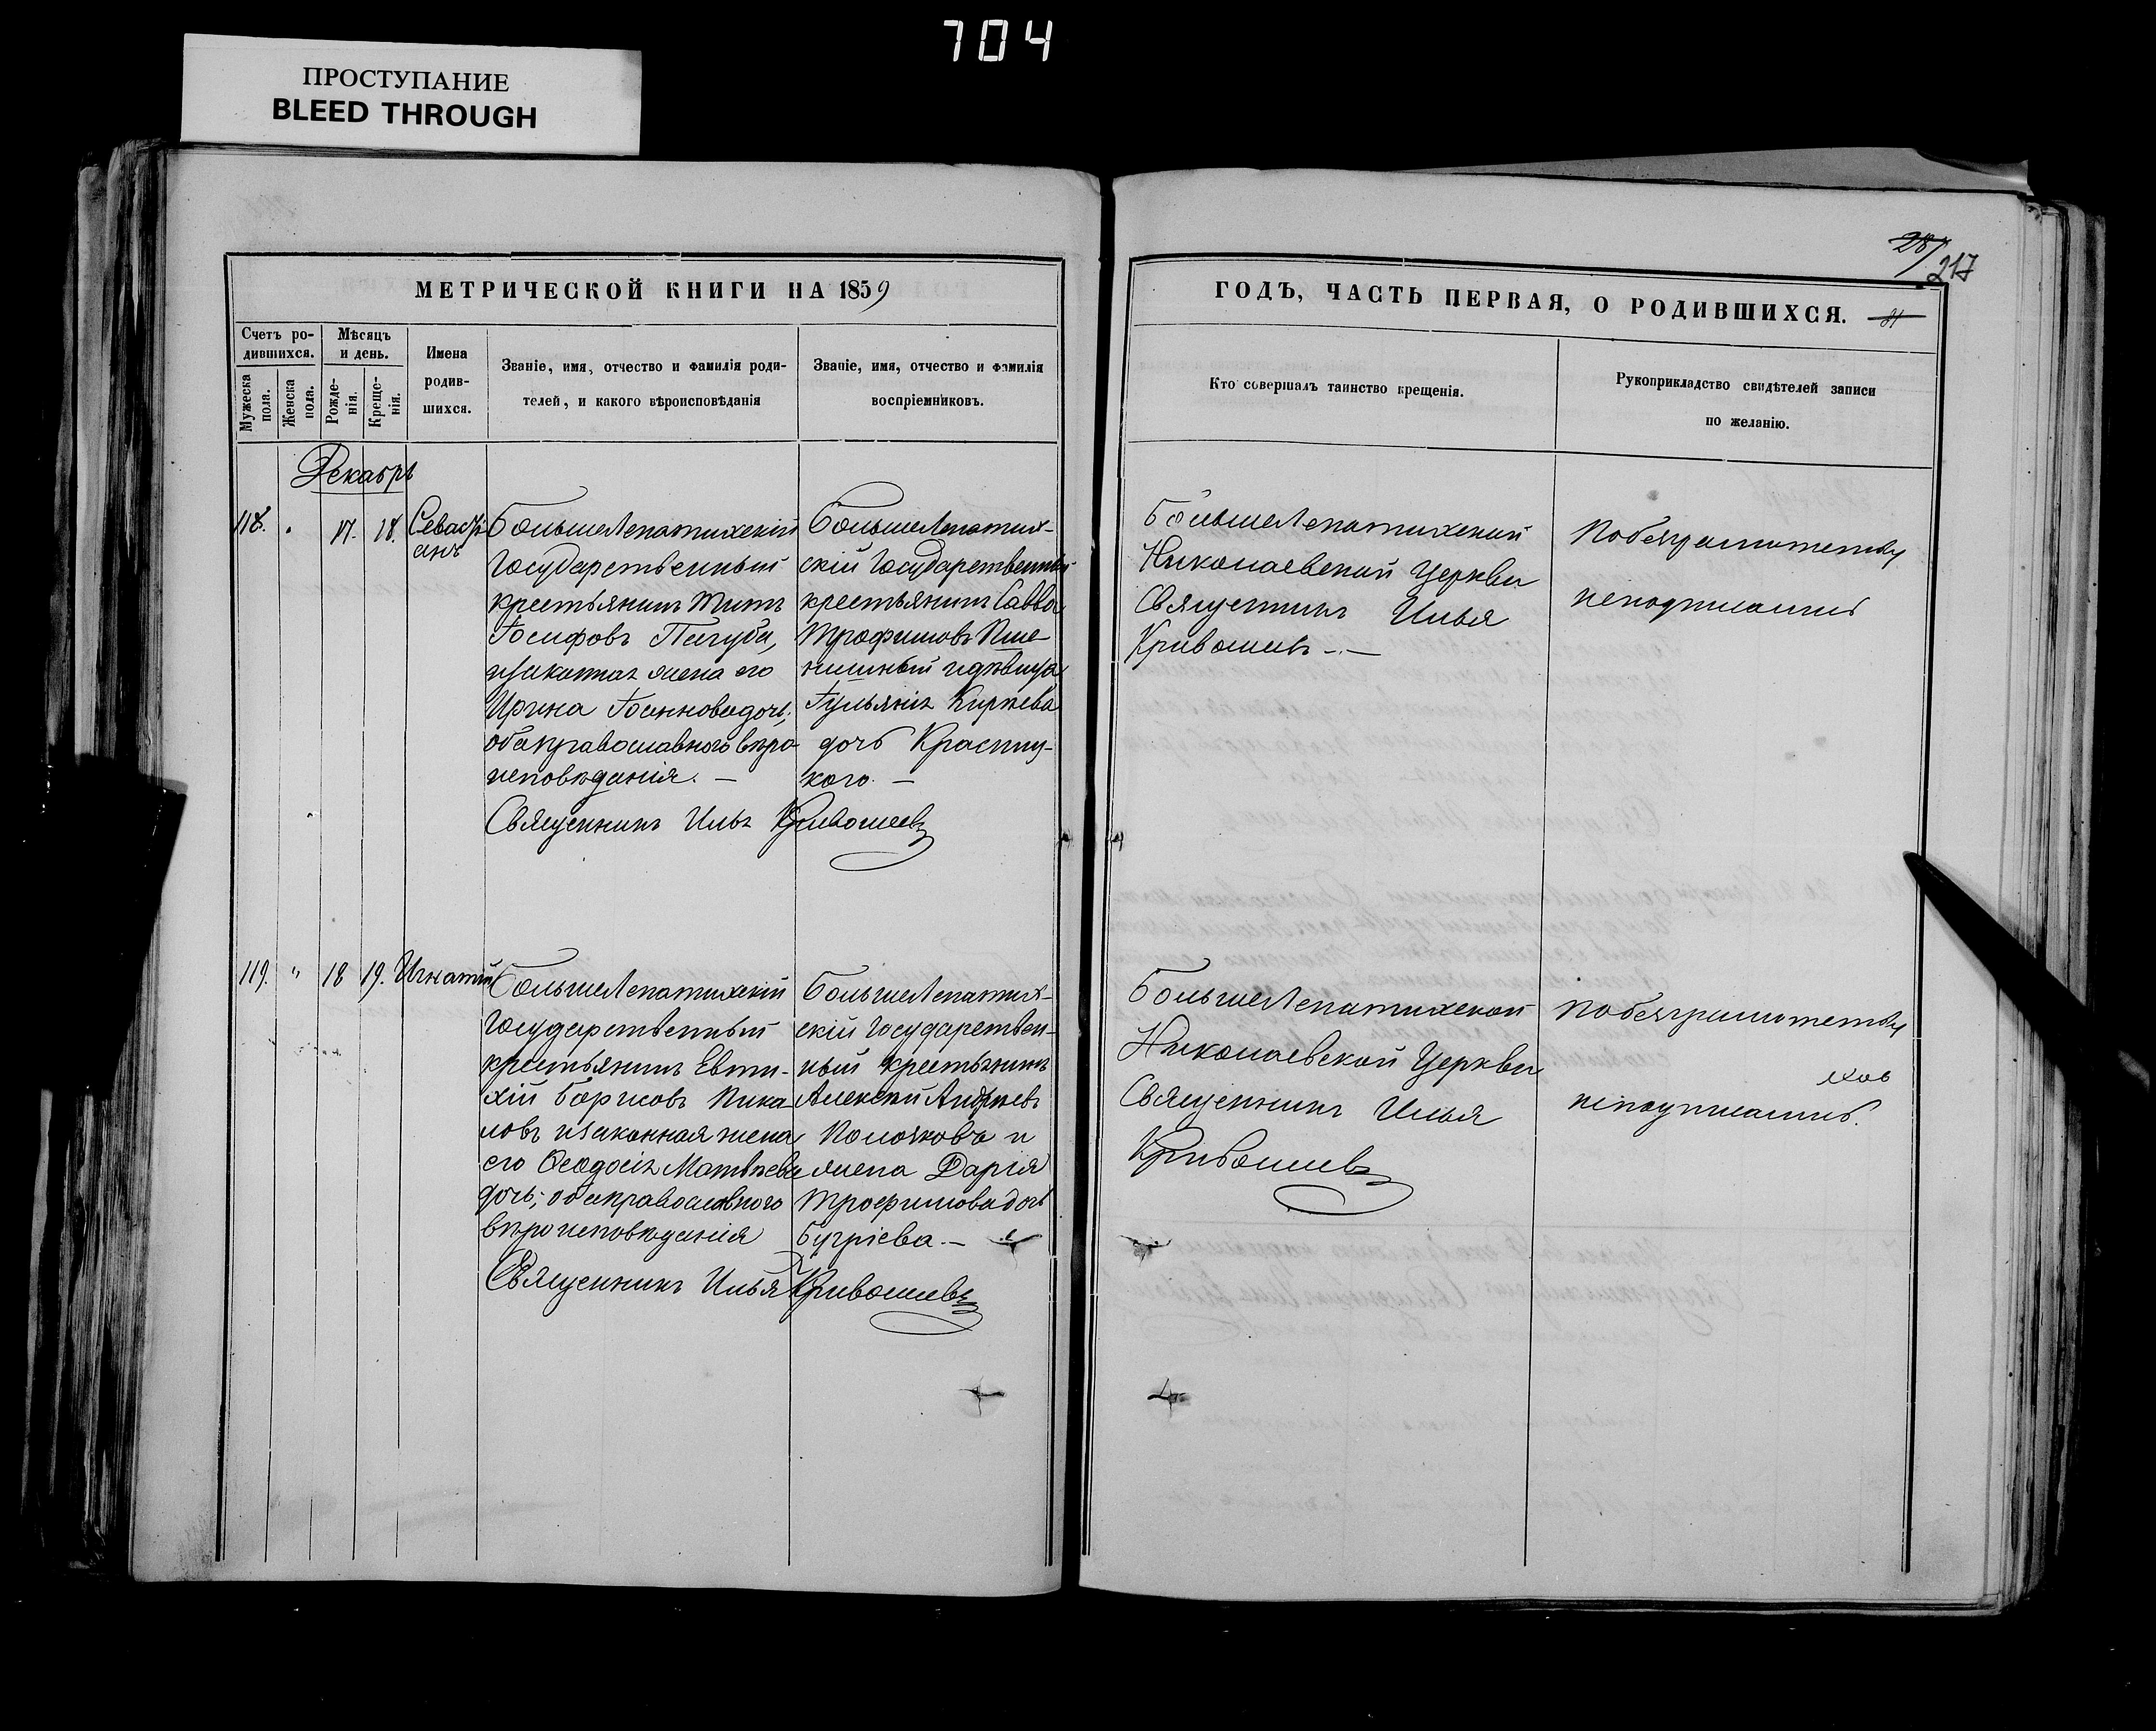 704
ПРОСТУПАНИЕ
BLEED THROUGH
МЕТРИЧЕСКОЙ КНИГИ НА 1859
Счетъ ро-
дившихся.
Мужеска
пола.
Женска
пола.
Мѣсяцъ
и день.
Рожде-
нія.
Креще-
нія.
Имена
родив-
шихся.
Званіе, имя, отчество и фамилія роди-
телей, и какого вѣроисповѣданія
Званіе, имя, отчество и фамилія
воспріемниковъ.
Декабрь
118. 17. 18.
Севастi-
анъ
БольшеЛепатихскій
Государственный
крестьянинъ Титъ
Іосифовъ
изаконная жена его
Ирина Іоаннова дочь;
оба православнаго вѣро
исповѣданія. —
БольшеЛепатих-
скій Государственный
крестьянинъ Савва
Трофимовъ Пше-
ничный идѣвица
Іульянія Кирѣева
дочь
кого. —
Священникъ Илья Кривошеевъ
119. " 18 19. Игнатій
БольшеЛепатихскій
Государственный
крестьянинъ Евти-
хій Борисовъ Пика
ловъ изаконная жена
его Ѳеодосія Матвѣева
дочь; оба православнаго
вѣроисповѣданія
БольшеЛепатих-
скій Государствен-
ный крестьянинъ
Алексѣй Андрѣевъ
и
жена Дарія
Трофимова дочь
Бугріева. —
Священникъ Илья Кривошеевъ
217
ГОДЪ, ЧАСТЬ ПЕРВАЯ, О РОДИВШИХСЯ.
Кто совершалъ таинство крещенія.
Рукоприкладство свидѣтелей записи
по желанію.
БольшеЛепатихской
Николаевской Церкви
Священникъ Илья
Кривошеевъ —
Побезграмотству
неподписались
БольшеЛепатихской
Николаевской Церкви
Священникъ Илья
Кривошеевъ
Побезграмотству
неподписались.